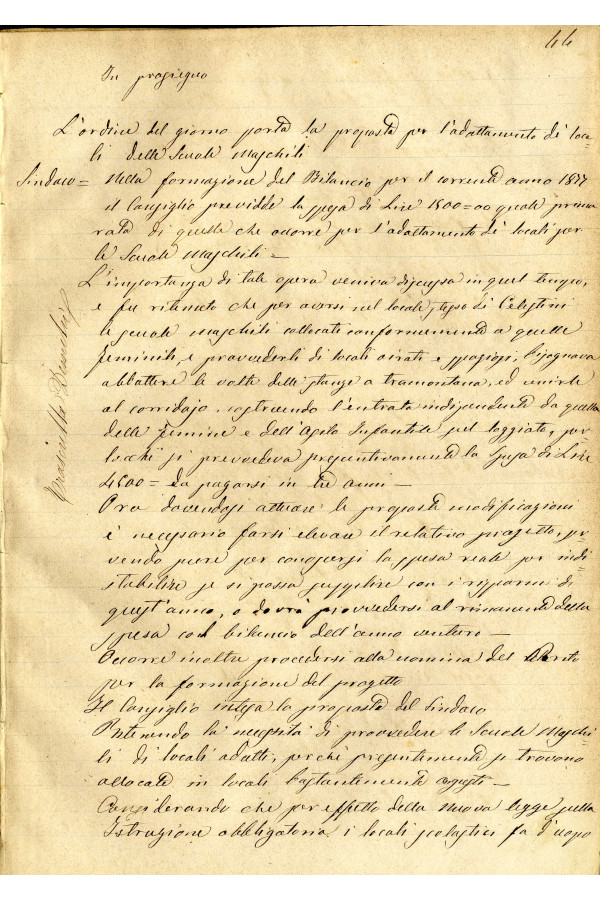 44
In prosieguo
L'ordine del giorno porta la proposta per l'adattamento de' loca=
li delle Scuole Maschili
Sindaco = Nella formazione del Bilancio per il corrente anno 1877
il Consiglio previdde la spesa di Lire 1500=00 quale prima
rata di quella che occorre per l'adattamento de' locali per
le Scuole Maschili =
L'importanza di tale opera veniva discussa in quel tempo,
e fu ritenuto che per aversi nel locale stesso de' Celestini
le scuole maschili collocate conformemente a quelle
feminili, e provvederli di locali aerati e spaziosi, bisognava
abbattere le volte delle stanze a tramontana, ed unirle
al corridojo costruendo l'entrata indipendente da quella
delle femine e dell'Asilo Infantile nel loggiato, per
locchè si prevedeva preventivamente la spesa di Lire
4500= da pagarsi in tre anni —
Ora dovendosi attuare le proposte modificazioni
è necessario farsi elevare il relativo progetto, do=
vendo pure per conoscersi la spesa reale per indi
stabilire se si possa supplire con i risparmi di
quest'anno, o dovrà provvedersi al rimanente della
spesa col bilancio dell'anno venturo —
Occorre inoltre procedersi alla nomina del Perito
per la formazione del progetto
Il Consiglio intesa la proposta del Sindaco
Ritenendo la necessità di provvedere le Scuole Maschi=
li di locali adatti, perchè presentemente si trovano
allocate in locali bastantemente angusti —
Considerando che per effetto della nuova legge sulla
Istruzione obbligatoria i locali scolastici fa d'uopo